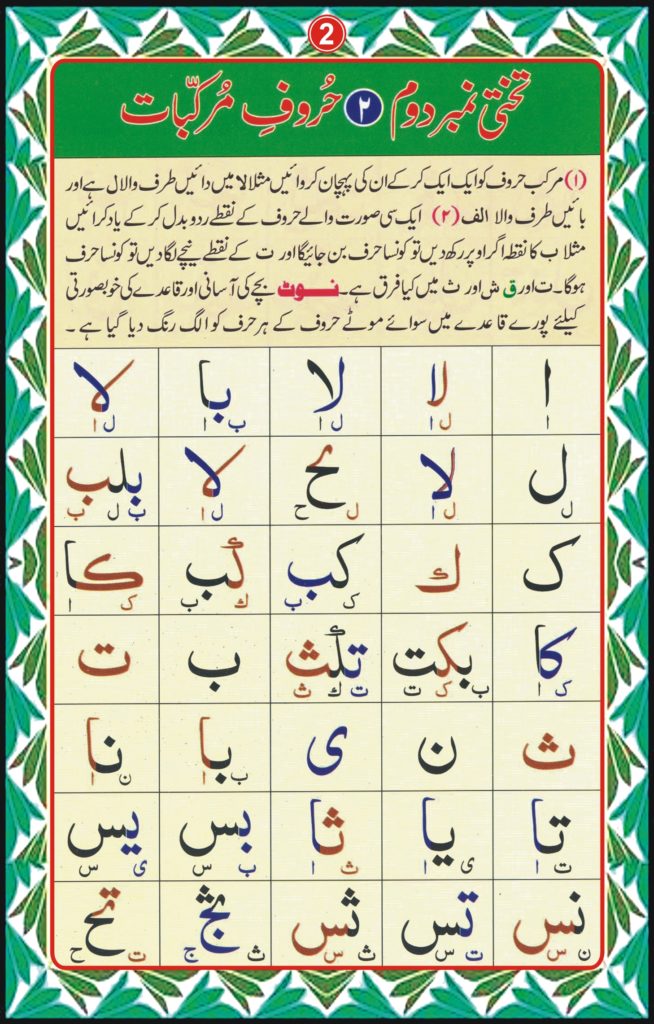 2
تختی نمبر دوم ۲ حُروفِ مُرکبّات
(۱) مرکب حروف کو ایک ایک کر کے ان کی پہچان کروائیں مثلا لا میں دائیں طرف والا ل ہے اور
بائیں طرف والا الف (۲) ایک سی صورت والے حروف کے نقطے ردو بدل کر کے یاد کرائیں
مثلا ب کا نقطہ اگر اوپر رکھ دیں تو کونسا حرف بن جائیگا اور ت کے نقطے نیچے لگا دیں تو کونسا حرف
ہوگا۔ ت اور ق ش اور ث میں کیا فرق ہے۔ نوٹ بچے کی آسانی اور قاعدے کی خوبصورتی
کیلئے پورے قاعدے میں سوائے موٹے حروف کے ہر حرف کو الگ رنگ دیا گیا ہے ۔
ا لا لا با لا
ل ا ل ا ب ا ل ا
ل لا لح لا بلب
ل ل ا ل ح ل ا ب ل ب
ک ك کب كب کا
ک ب ك ب ک ا
کا بکت تكث ب ت
ک ا ب ک ت ت ك ث
ث ن ی با نا
ب ا ن ا
تا یا ثا بس یس
ت ا ی ا ث ا ب س ی س
نس تس ثس ثج تح
ن س ت س ث س ث ج ت ح